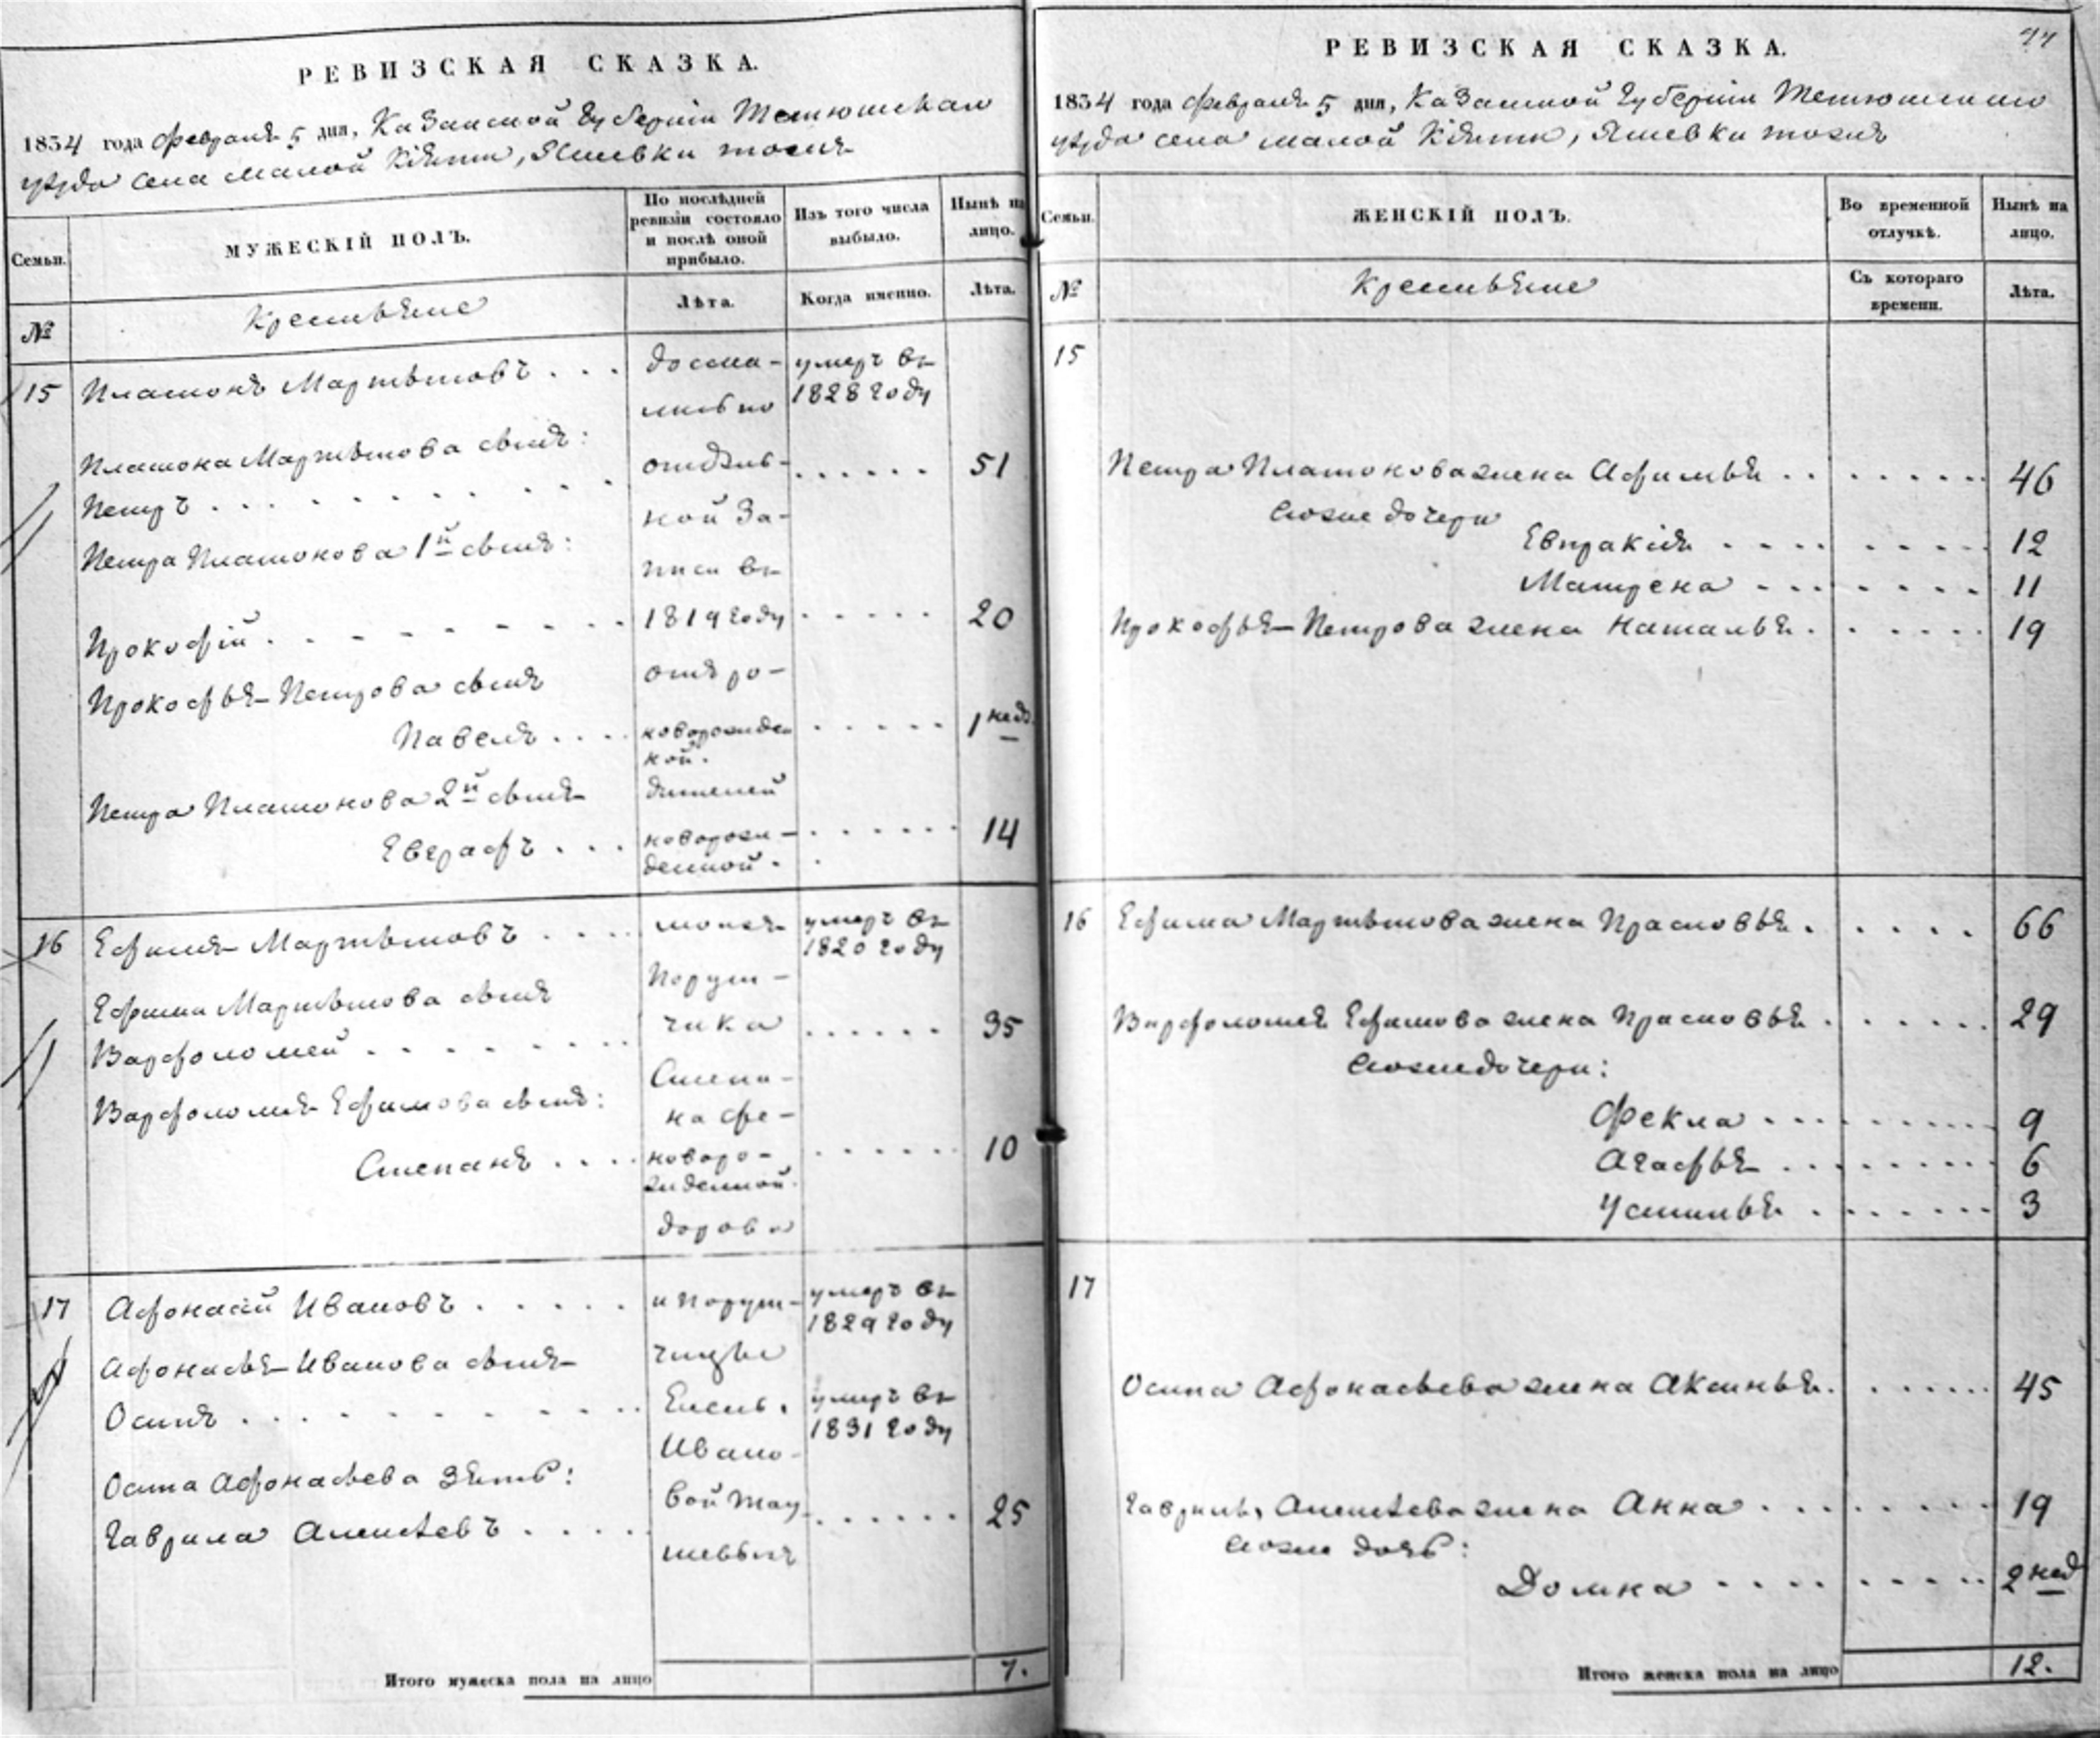 РЕВИЗСКАЯ СКАЗКА.
1834 года февраля 5 дня, Казанской Губернiи Тетюшскаго
уѣзда села малой Кiяти, Яшевки тожъ
Семьи.
МУЖЕСКIЙ ПОЛЪ.
По послѣдней ревизiи состояло и послѣ оной прибыло.
Изъ того числа выбыло.
Нынѣ на лицо.
№
Крестьяне
Лѣта.
Когда именно.
Лѣта.
15 Платонъ Мартыновъ . . . доста- умеръ въ
лись по 1828 году
Платона Мартынова сынъ:
Петръ . . . . . . . . . отдѣль- . . . . . . 51
ной За-
Петра Платонова 1й сынъ:
писи въ
Прокофiй . . . . . . . . 1819 году . . . . . 20
отъ ро-
Прокофья Петрова сынъ
Павелъ . . . . новорожден . . . . . 1 нед.
ной.
Петра Платонова 2й сынъ дителей
Евграфъ . . . новорож- . . . . . . 14
денной.
16 Ефимъ Мартыновъ . . . . моихъ умеръ въ
1820 году
Порут-
Ефима Мартынова сынъ
Варфоломей . . . . . . . . чика . . . . . . 35
Степа-
Варфоломея Ефимова сынъ: на Фе-
Степанъ . . . . новоро- . . . . . . 10
жденной.
дорова
17 Афонасiй Ивановъ . . . . . и Порут- умеръ въ
1829 году
Афонасья Иванова сынъ чицы
Осипъ . . . . . . . . . Елены умеръ въ
1831 году
Ивано-
Осипа Афонасьева Зять:
Гаврила Алексѣевъ . . . . вой Тау . . . . . . 25
шевыхъ
Итого мужеска пола на лицо 7.
РЕВИЗСКАЯ СКАЗКА.
1834 года февраля 5 дня, Казанской Губернiи Тетюшскаго
уѣзда села малой Кiяти, Яшевки тожъ
Семьи.
ЖЕНСКIЙ ПОЛЪ.
Во временной отлучкѣ.
Нынѣ на лицо.
№
Крестьяне
Съ котораго времени.
Лѣта.
15
Петра Платонова жена Афимья . . . . . . . . 46
Ево же дочери
Евпракiя . . . . . . . . . 12
Матрена . . . . . . . . . 11
Прокофья Петрова жена Наталья . . . . . . 19
16 Ефима Мартынова жена Прасковья . . . . . 66
Варфоломея Ефимова жена Прасковья . . . . . . 29
Ево же дочери:
Фекла . . . . . . . . . . 9
Агафья . . . . . . . . . 6
Устинья . . . . . . . 3
17
Осипа Афонасьева жена Аксинья . . . . . . . 45
Гаврилы Алексѣева жена Анна . . . . . . . . 19
Ево же дочь:
Домна . . . . . . . . . 2 нед
Итого женска пола на лицо 12.